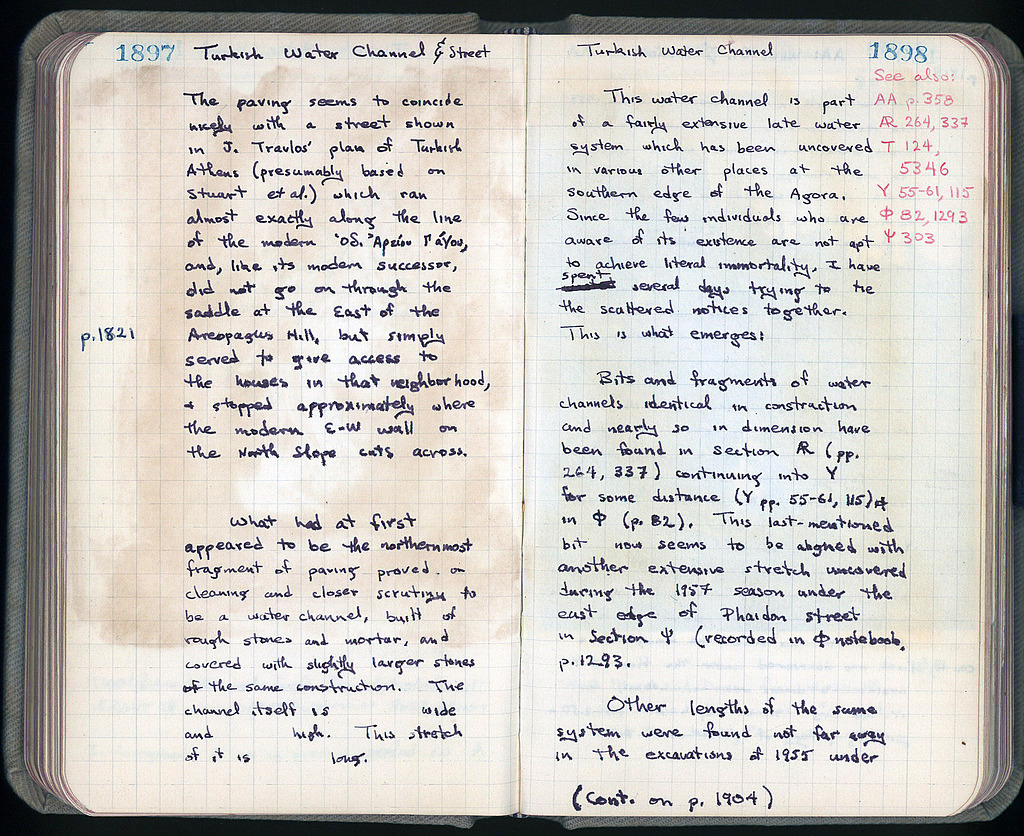 1897 Turkish Water Channel & Street
The paving seems to coincide
nicely with a street shown
in J. Travlos' plan of Turkish
Athens (presumably based on
Stuart et al.) which ran
almost exactly along the line
of the modern ὁδ. Ἀρείου Πάγου,
and, like its modern successor,
did not go on through the
saddle at the East of the
p.1821
Areopagus Hill, but simply
served to give access to
the houses in that neighborhood,
+ stopped approximately where
the modern E-W wall on
the North Slope cuts across.
What had at first
appeared to be the northernmost
fragment of paving proved on
cleaning and closer scrutiny to
be a water channel, built of
rough stones and mortar, and
covered with slightly larger stones
of the same construction. The
channel itself is wide
and high. This stretch
of it is long.
Turkish Water Channel 1898
See also:
AA p. 358
ÆR 264, 337
T 124,
5346
Y 55-61, 115
Φ 82, 1293
Ψ 303
This water channel is part
of a fairly extensive late water
system which has been uncovered
in various other places at the
southern edge of the Agora.
Since the few individuals who are
aware of its existence are not apt
to achieve literal immortality, I have
spent several days trying to tie
the scattered notices together.
This is what emerges:
Bits and fragments of water
channels identical in construction
and nearly so in dimension have
been found in section ÆR (pp.
264, 337) continuing into Y
for some distance (Y pp. 55-61, 115) +
in Φ (p. 82). This last-mentioned
bit now seems to be aligned with
another extensive stretch uncovered
during the 1957 season under the
east edge of Phaidon street
in Section Ψ (recorded in Φ notebook,
p. 1293.
Other lengths of the same
system were found not far away
in the excavations of 1955 under
(Cont. on p. 1904)